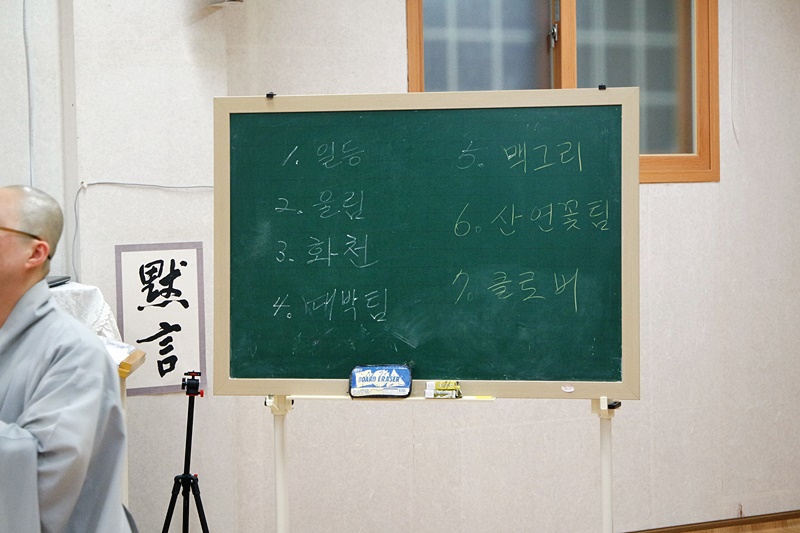 1. 일등
2. 울림
3. 화천
4. 대박팀
5. 맥그리
6. 산연꽃팀
7. 클로버
默言
BOARD ERASER